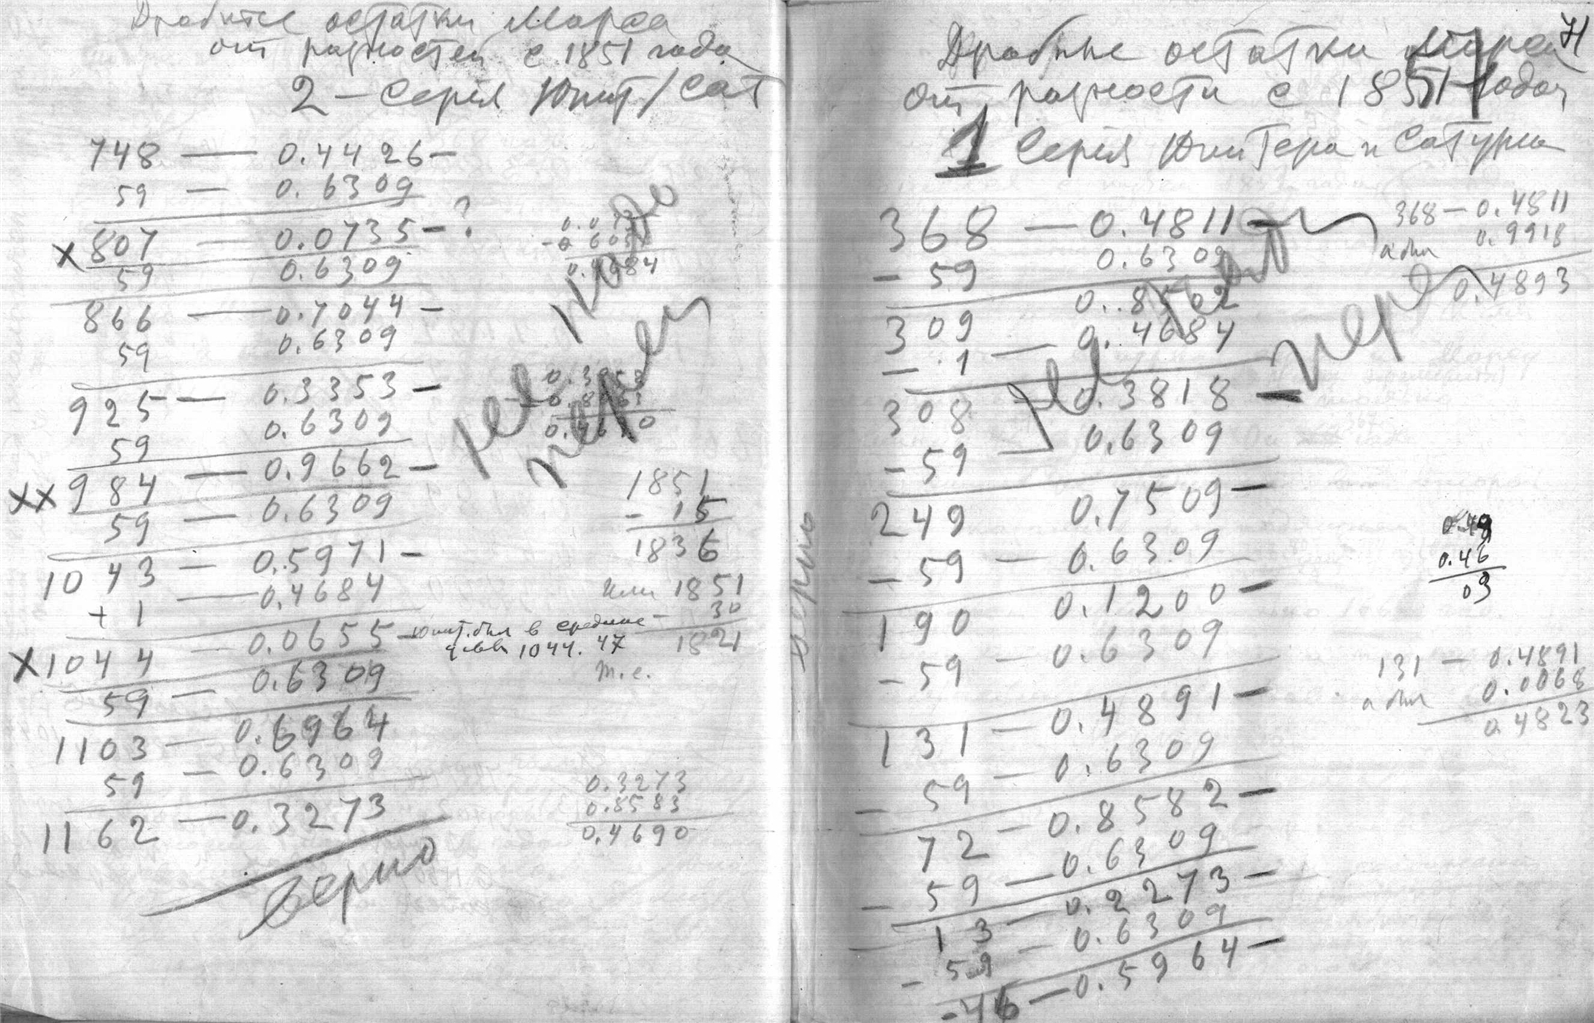 Дробные остатки Марса
от разностей с 1851 года
2 — Серія Юпит/Сат
748 — 0.4426 —
59 — 0.6309
x 807 — 0.0735 — ?
59 0.6309
866 — 0.7044 —
59 0.6309
925 — 0.3353 —
59 0.6309
xx 984 — 0.9662 —
59 — 0.6309
1043 — 0.5971 —
+ 1 — 0.4684
x 1044 — 0.0655 —
59 — 0.6309
1103 — 0.6964
59 — 0.6309
1162 — 0.3273
верно
надо
1851
- 15
1836
или 1851
- 30
1821
т.е.
Юпит. был в средине
1044. 47
0.3273
0.8583
0.4690
верно
71
Дробные остатки Марса
от разности с 1851 года
1 Серія Юпитера и Сатурна
368 — 0.4811 —
- 59 0.6309
309 0.8502
- 1 — 0.4684
308 0.3818 —
- 59 — 0.6309
249 0.7509 —
- 59 — 0.6309
190 0.1200 —
- 59 — 0.6309
131 — 0.4891 —
- 59 — 0.6309
72 — 0.8582 —
- 59 — 0.6309
13 — 0.2273 —
- 59 — 0.6309
- 46 — 0.5964 —
368 — 0.4811
0.9918
0.4893
0.49
0.46
03
131 — 0.4891
0.0068
0.4823